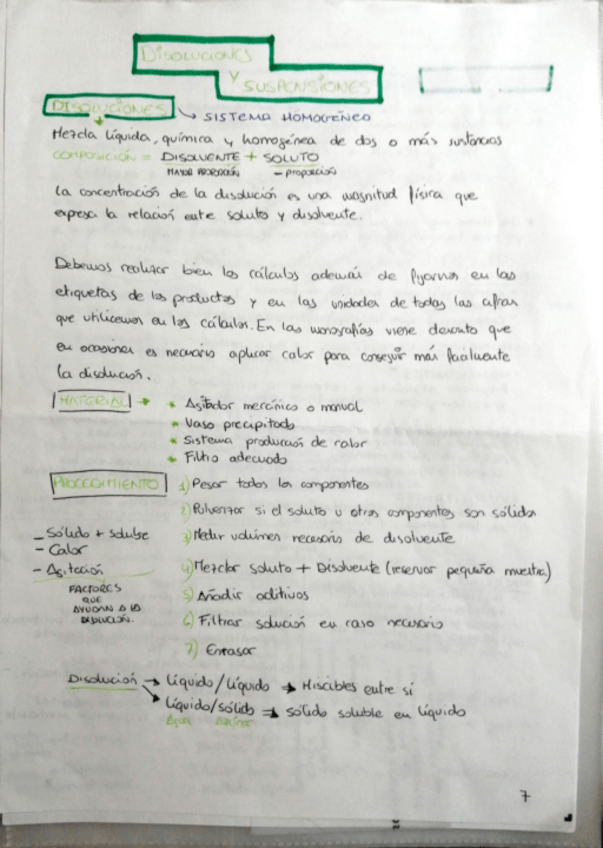 DISOLUCIONES
Y SUSPENSIONES
DISOLUCIONES → SISTEMA HOMOGÉNEO
Mezcla líquida, química y homogénea de dos o más sustancias
COMPOSICIÓN = DISOLVENTE + SOLUTO
MAYOR PROPORCIÓN - proporción
La concentración de la disolución es una magnitud física que
expresa la relación entre soluto y disolvente.
Debemos realizar bien los cálculos además de fijarnos en las
etiquetas de los productos y en las unidades de todas las cifras
que utilicemos en los cálculos. En las monografías viene descrito que
en ocasiones es necesario aplicar calor para conseguir más fácilmente
la disolución.
MATERIAL → * Agitador mecánico o manual
* Vaso precipitado
* Sistema producción de calor
* Filtro adecuado
PROCEDIMIENTO 1) Pesar todos los componentes
2) Pulverizar si el soluto u otros componentes son sólidos
- Sólido + soluble
- Calor
- Agitación
FACTORES
QUE
AYUDAN A LA
DISOLUCIÓN.
3) Medir volúmenes necesario de disolvente
4) Mezclar soluto + Disolvente (reservar pequeña muestra)
5) Añadir aditivos
6) Filtrar solución en caso necesario
7) Enrasar
Disolución → Líquido/Líquido → Miscibles entre sí
→ Líquido/sólido → sólido soluble en líquido
Agua Azúcar
7